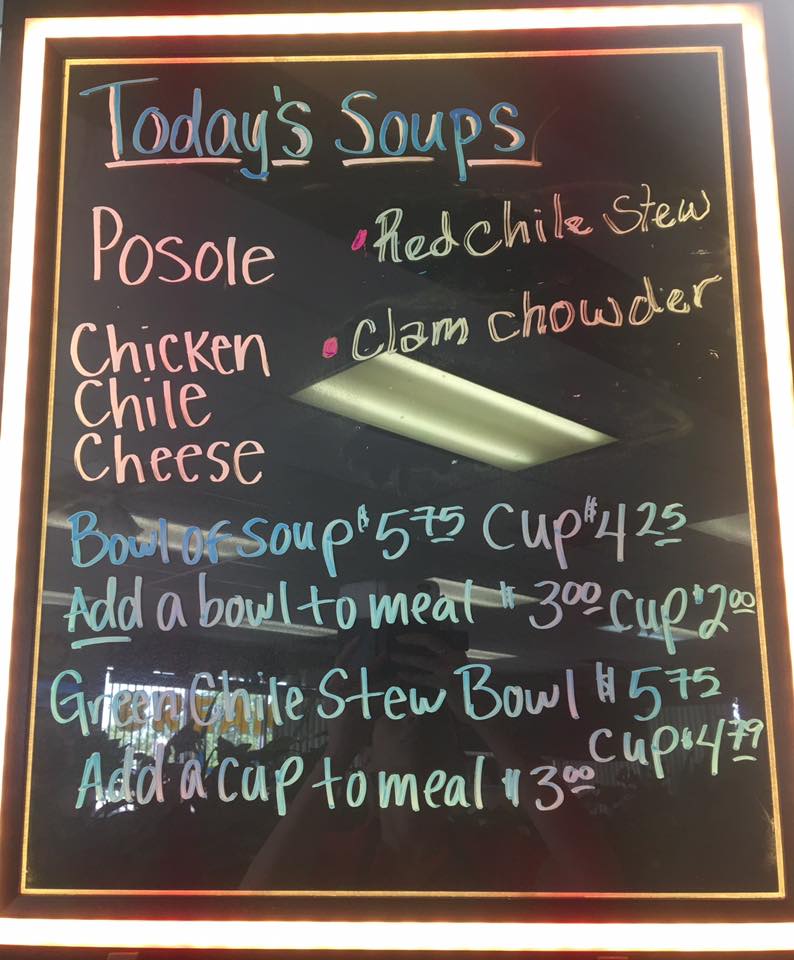 Today's Soups
Posole
• Red Chile Stew
Chicken
Chile
Cheese
• Clam chowder
Bowl of soup $5 75 Cup $4 25
Add a bowl to meal $3 00 Cup $2 00
Green Chile Stew Bowl $5 75
Cup $4 79
Add a cup to meal $3 00